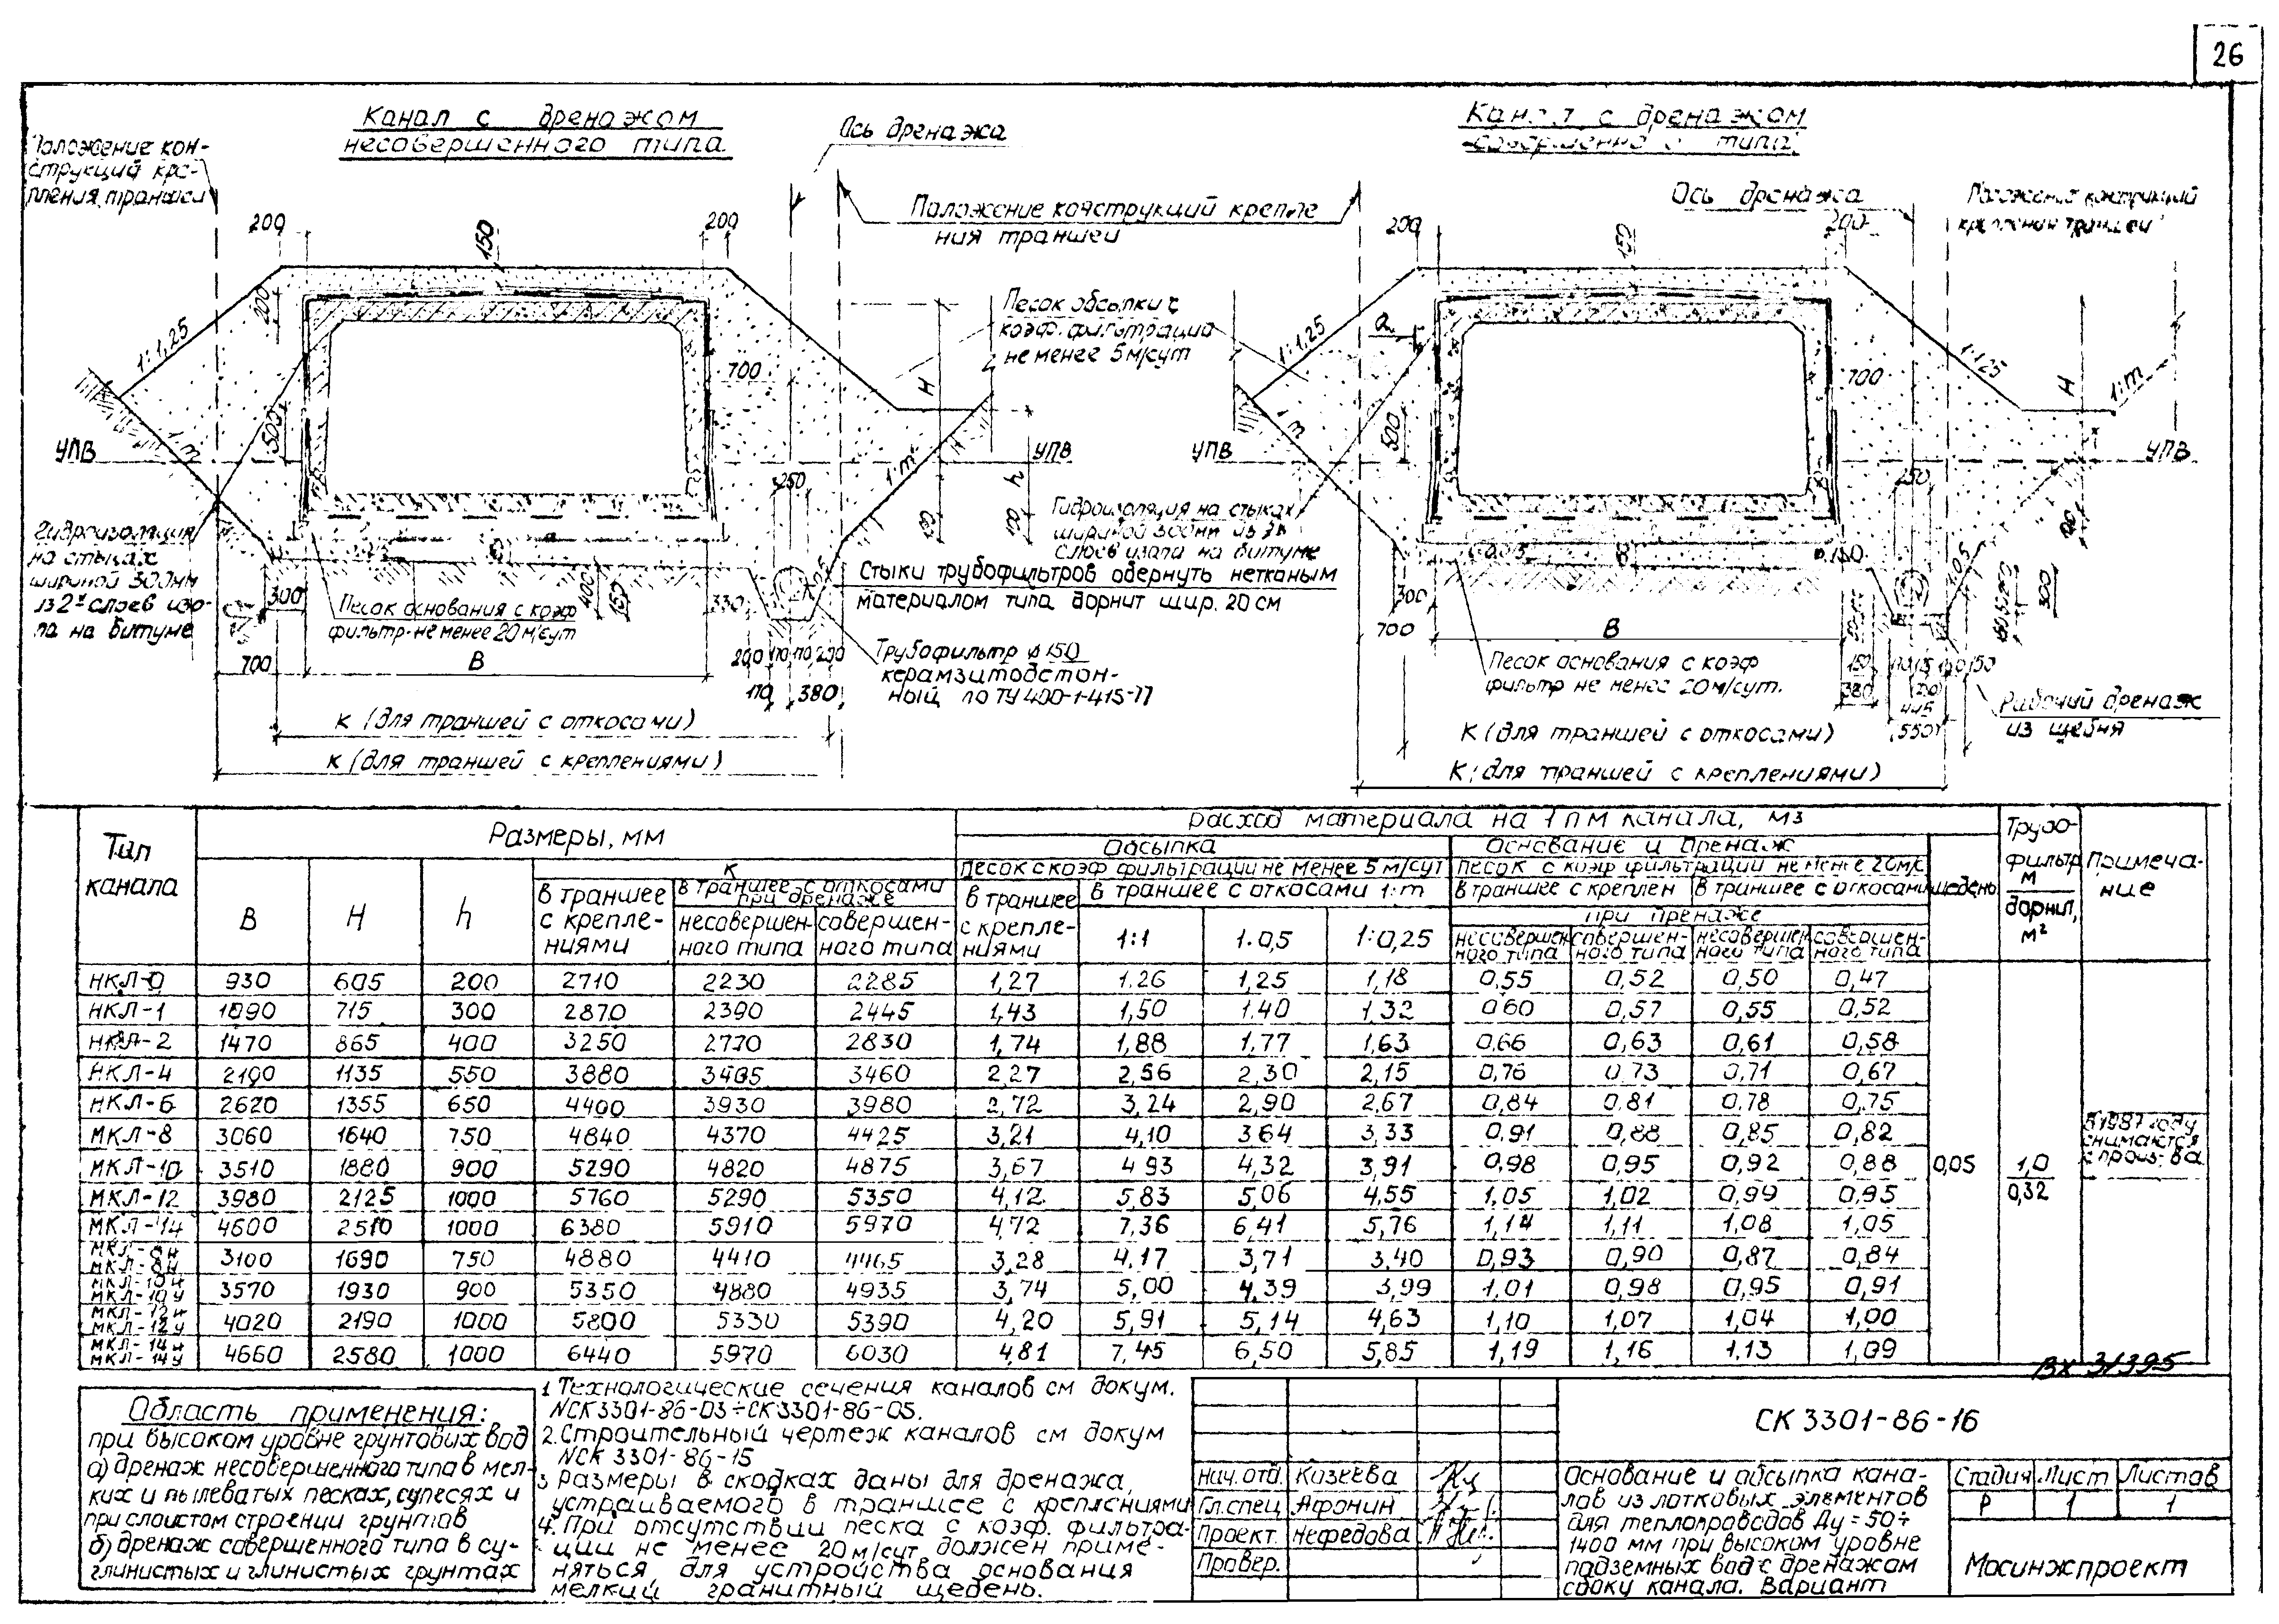 26
Канал с дренажом
несовершенного типа
Ось дренажа
Положение кон-
струкций кре-
пления траншеи
Положение конструкций крепле
ния траншеи
Канал с дренажом
совершенно типа
Ось дренажа
Положение конструкций
крепления траншеи
200
150
200
200
1:1,25
700
500
1:m
УПВ
Н
h
100
УПВ
250
1:m
Песок обсыпки с
коэф. фильтрации
не менее 5 м/сут
Гидроизоляция
на стыках
шириной 300мм
из 2х слоев изо-
ла на битуме
300
Песок основания с коэф
фильтр. не менее 20 м/сут
400
150
330
Стыки трубофильтров обернуть нетканым
материалом типа дорнит шир. 20 см
Трубофильтр ф 150
керамзитобетон-
ный по ТУ 400-1-415-77
700
В
200 170 170 200
170 380
К (для траншей с откосами)
К (для траншей с креплениями)
200
150
200
1:1,25
а
700
1:1,25
Н
1:m
500
УПВ
УПВ
250
Гидроизоляция на стыках
шириной 300мм из 2х
слоев изола на битуме
300
700
В
300
Песок основания с коэф
фильтр не менее 20 м/сут.
150
380
445
(550)
Рабочий дренаж
из щебня
К (для траншей с откосами)
К (для траншей с креплениями)
Тип канала
Размеры, мм
Расход материала на 1 п м канала, м3
Трубо-
фильтр
м
дорнит,
м²
Примеча-
ние
Обсыпка
Основание и дренаж
В
Н
h
К
Песок с коэф фильтрации не менее 5 м/сут
Песок с коэф фильтрации не менее 20м/с
щебень
в траншее с крепле-ниями
в траншее с откосами при дренаже
несовершен-ного типа
совершен-ного типа
в траншее с крепле-ниями
в траншее с откосами 1:m
1:1
1:0,5
1:0,25
в траншее с креплен
в траншее с откосами
при дренаже
несовершен-ного типа
совершен-ного типа
несовершен-ного типа
совершен-ного типа
НКЛ-0 930 605 200 2710 2230 2285 1,27 1.26 1,25 1,18 0,55 0,52 0,50 0,47
НКЛ-1 1090 715 300 2870 2390 2445 1,43 1,50 1.40 1,32 0 60 0,57 0,55 0,52
НКЛ-2 1470 865 400 3250 2770 2830 1,74 1,88 1,77 1,63 0,66 0,63 0,61 0,58
НКЛ-4 2100 1135 550 3880 3405 3460 2,27 2,56 2,30 2,15 0,76 0,73 0,71 0,67
НКЛ-6 2620 1355 650 4400 3930 3980 2,72 3,24 2,90 2,67 0,84 0.81 0,78 0,75
МКЛ-8 3060 1640 750 4840 4370 4425 3,21 4,10 3 64 3,33 0,91 0,88 0,85 0,82
МКЛ-10 3510 1880 900 5290 4820 4875 3,67 4 93 4,32 3,91 0,98 0,95 0,92 0,88
МКЛ-12 3980 2125 1000 5760 5290 5350 4,12 5,83 5,06 4,55 1,05 1,02 0,99 0,95
МКЛ-14 4600 2510 1000 6380 5910 5970 4,72 7,36 6,41 5,76 1,14 1,11 1,08 1,05
МКЛ-8н МКЛ-8у 3100 1690 750 4880 4410 4465 3,28 4,17 3,71 3,40 0,93 0,90 0,87 0,84
МКЛ-10н МКЛ-10у 3570 1930 900 5350 4880 4935 3,74 5,00 4,39 3,99 1,01 0,98 0,95 0,91
МКЛ-12н МКЛ-12у 4020 2190 1000 5800 5330 5390 4,20 5,91 5,14 4,63 1,10 1,07 1,04 1,00
МКЛ-14н МКЛ-14у 4660 2580 1000 6440 5970 6030 4,81 7,45 6,50 5,85 1,19 1,16 1,13 1,09
0,05
1,0
0,32
В 1987 году
снимаются
с произ-ва
Вх 31395
Область применения:
при высоком уровне грунтовых вод
а) дренаж несовершенного типа в мел-
ких и пылеватых песках, супесях и
при слоистом строении грунтов
б) дренаж совершенного типа в су-
глинистых и глинистых грунтах
1 Технологические сечения каналов см докум.
NСК 3301-86-03÷СК 3301-86-05.
2. Строительный чертеж каналов см докум
NСК 3301-86-15
3 Размеры в скобках даны для дренажа,
устраиваемого в траншее с креплениями
4. При отсутствии песка с коэф. фильтра-
ции не менее 20 м/сут должен приме-
няться для устройства основания
мелкий гранитный щебень.
Нач. отд. Козеева
Гл. спец Афонин
Проект. Нефедова
Провер.
СК 3301-86-16
Основание и обсыпка кана-
лов из лотковых элементов
для теплопроводов Ду=50÷
1400 мм при высоком уровне
подземных вод с дренажом
сбоку канала. Вариант
Стадия Лист Листов
Р 1 1
Мосинжпроект